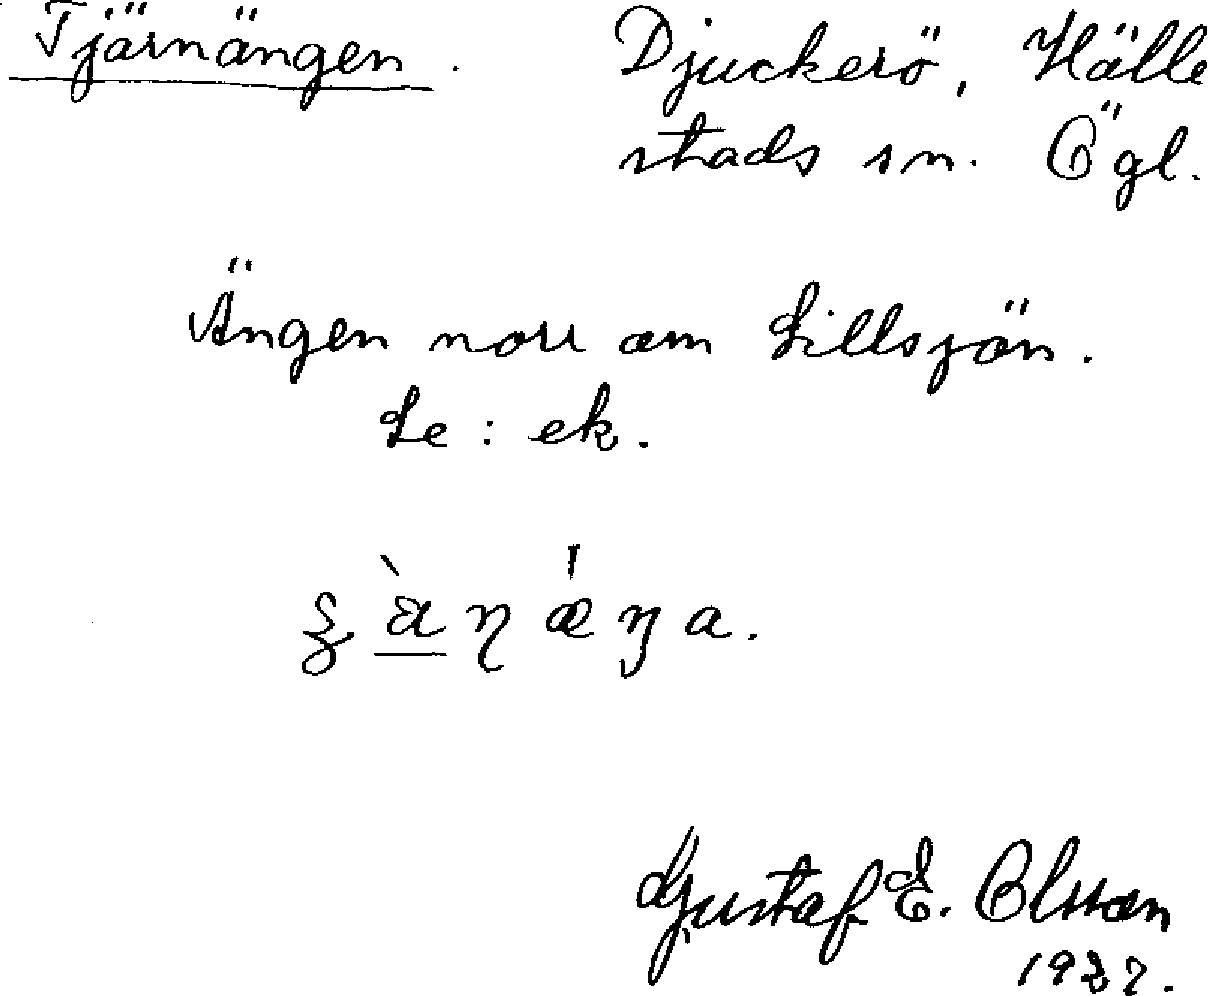 Tjärnängen. Djuckerö, Hälle
stads sn. Ögl.
Ängen norr om Lillsjön.
Le: ek.
Gustaf E. Olsson
1927.